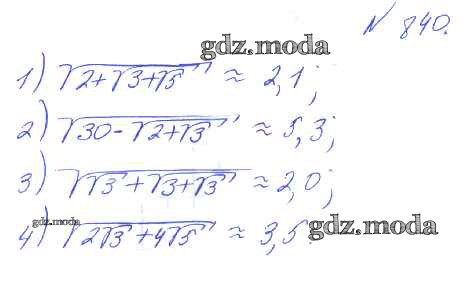 № 840.
gdz.moda
1) √(2+√(3+√5)) ≈ 2,1;
2) √(30-√(2+√3)) ≈ 5,3;
3) √(√3+√(3+√3)) ≈ 2,0;
gdz.moda
4) √(2√3+4√5) ≈ 3,5.
gdz.moda